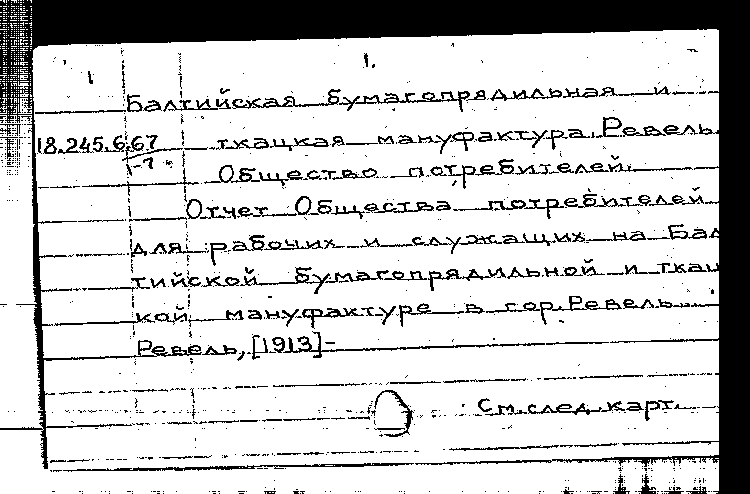 1 1.
Балтийская бумагопрядильная и
18.245.6.67 ткацкая мануфактура. Ревель.
1-7 Общество потребителей.
Отчет Общества потребителей
для рабочих и служащих на Бал
тийской бумагопрядильной и ткац
кой мануфактуре в гор. Ревель...
Ревель, [1913]-
См. след. карт.